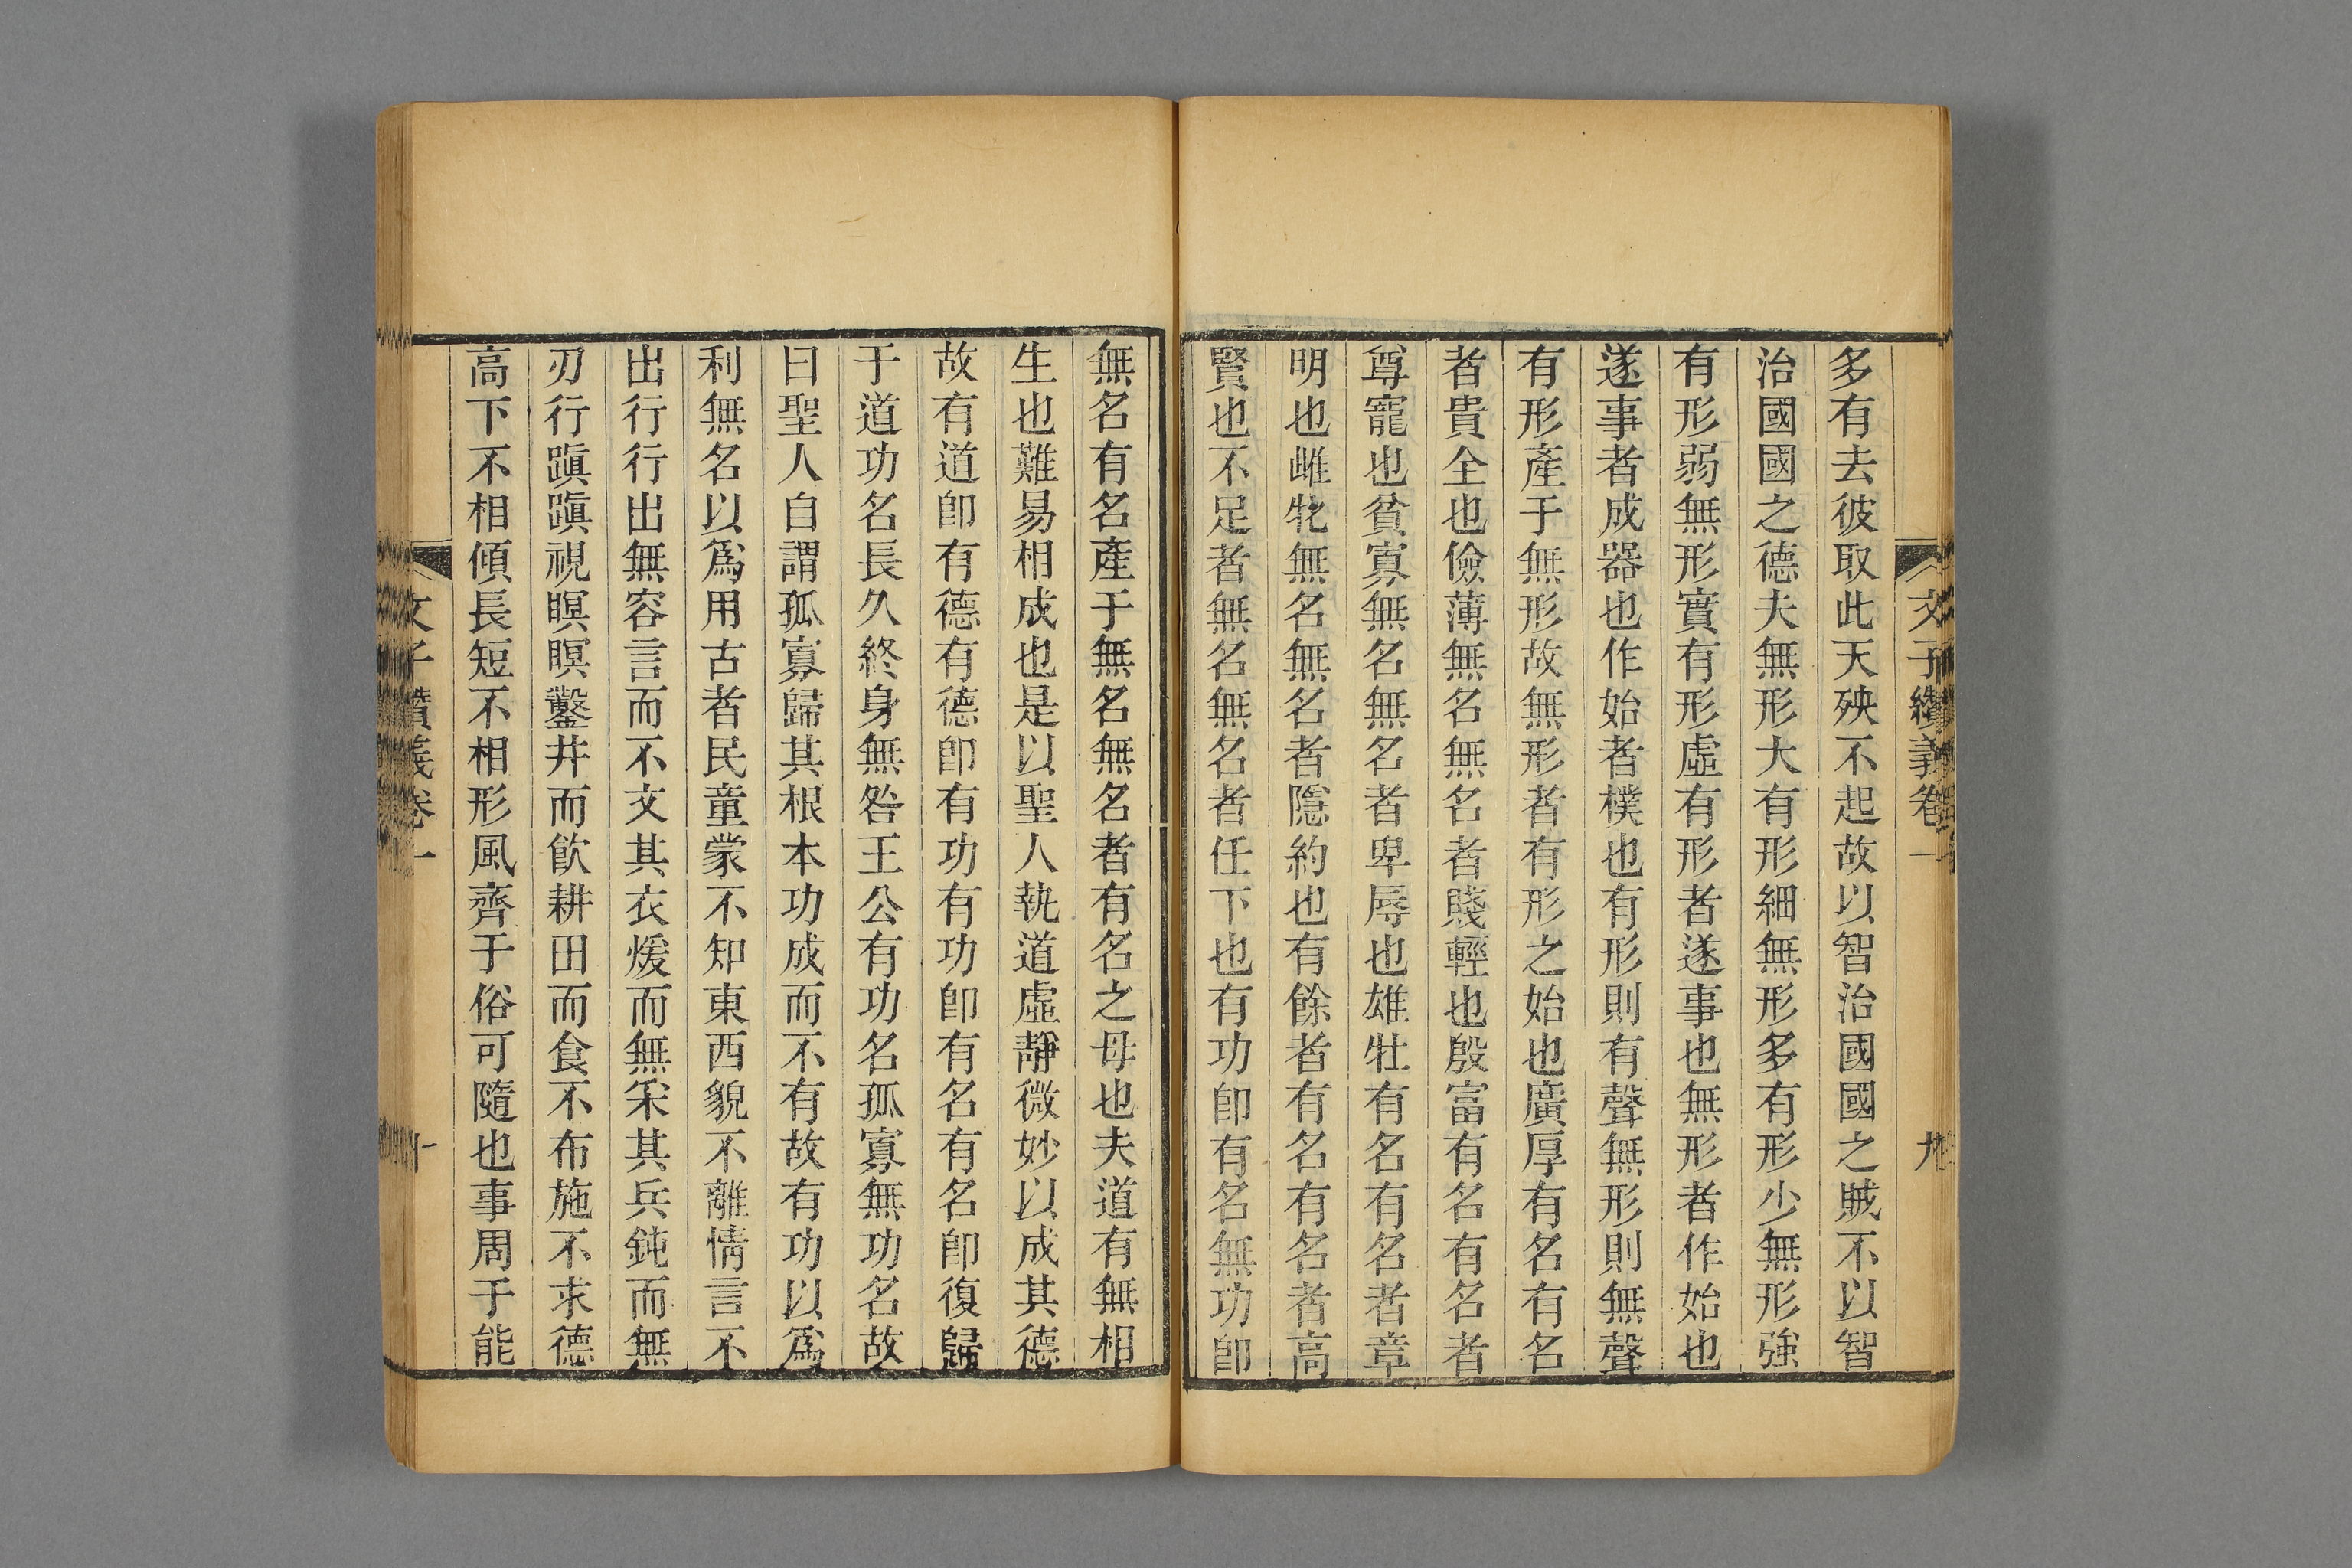 文子纘義卷一 九
多有去彼取此天殃不起故以智治國國之賊不以智
治國國之德夫無形大有形細無形多有形少無形強
有形弱無形實有形虛有形者遂事也無形者作始也
遂事者成器也作始者樸也有形則有聲無形則無聲
有形產于無形故無形者有形之始也廣厚有名有名
者貴全也儉薄無名無名者賤輕也殷富有名有名者
尊寵也貧寡無名無名者卑辱也雄牡有名有名者章
明也雌牝無名無名者隱約也有餘者有名有名者高
賢也不足者無名無名者任下也有功卽有名無功卽
無名有名產于無名無名者有名之母也夫道有無相
生也難易相成也是以聖人執道虛靜微妙以成其德
故有道卽有德有德卽有功有功卽有名有名卽復歸
于道功名長久終身無咎王公有功名孤寡無功名故
曰聖人自謂孤寡歸其根本功成而不有故有功以爲
利無名以爲用古者民童蒙不知東西貌不離情言不
出行行出無容言而不文其衣煖而無采其兵鈍而無
刃行蹎蹎視瞑瞑鑿井而飲耕田而食不布施不求德
高下不相傾長短不相形風齊于俗可隨也事周于能
文子纘義卷一 十